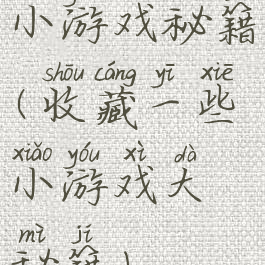 小游戏秘籍
shōu cáng yī xiē
(收藏一些
xiǎo yóu xì dà
小游戏大
mì jí
秘籍)